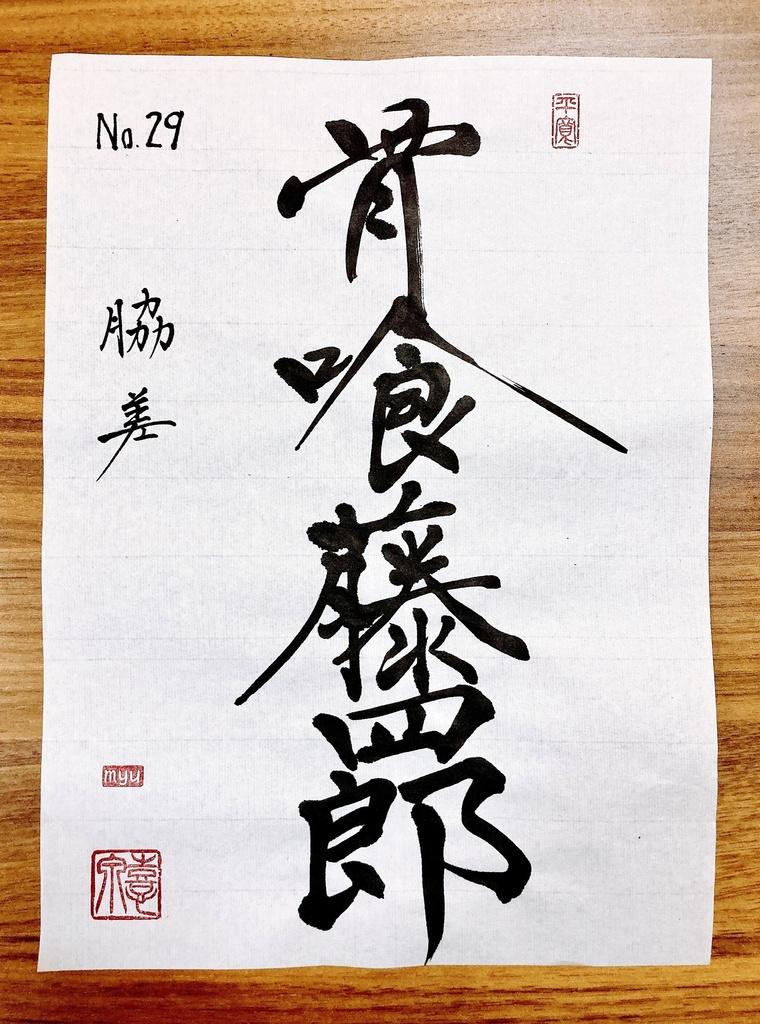 平寛
骨喰藤四郎
No.29
脇差
myu